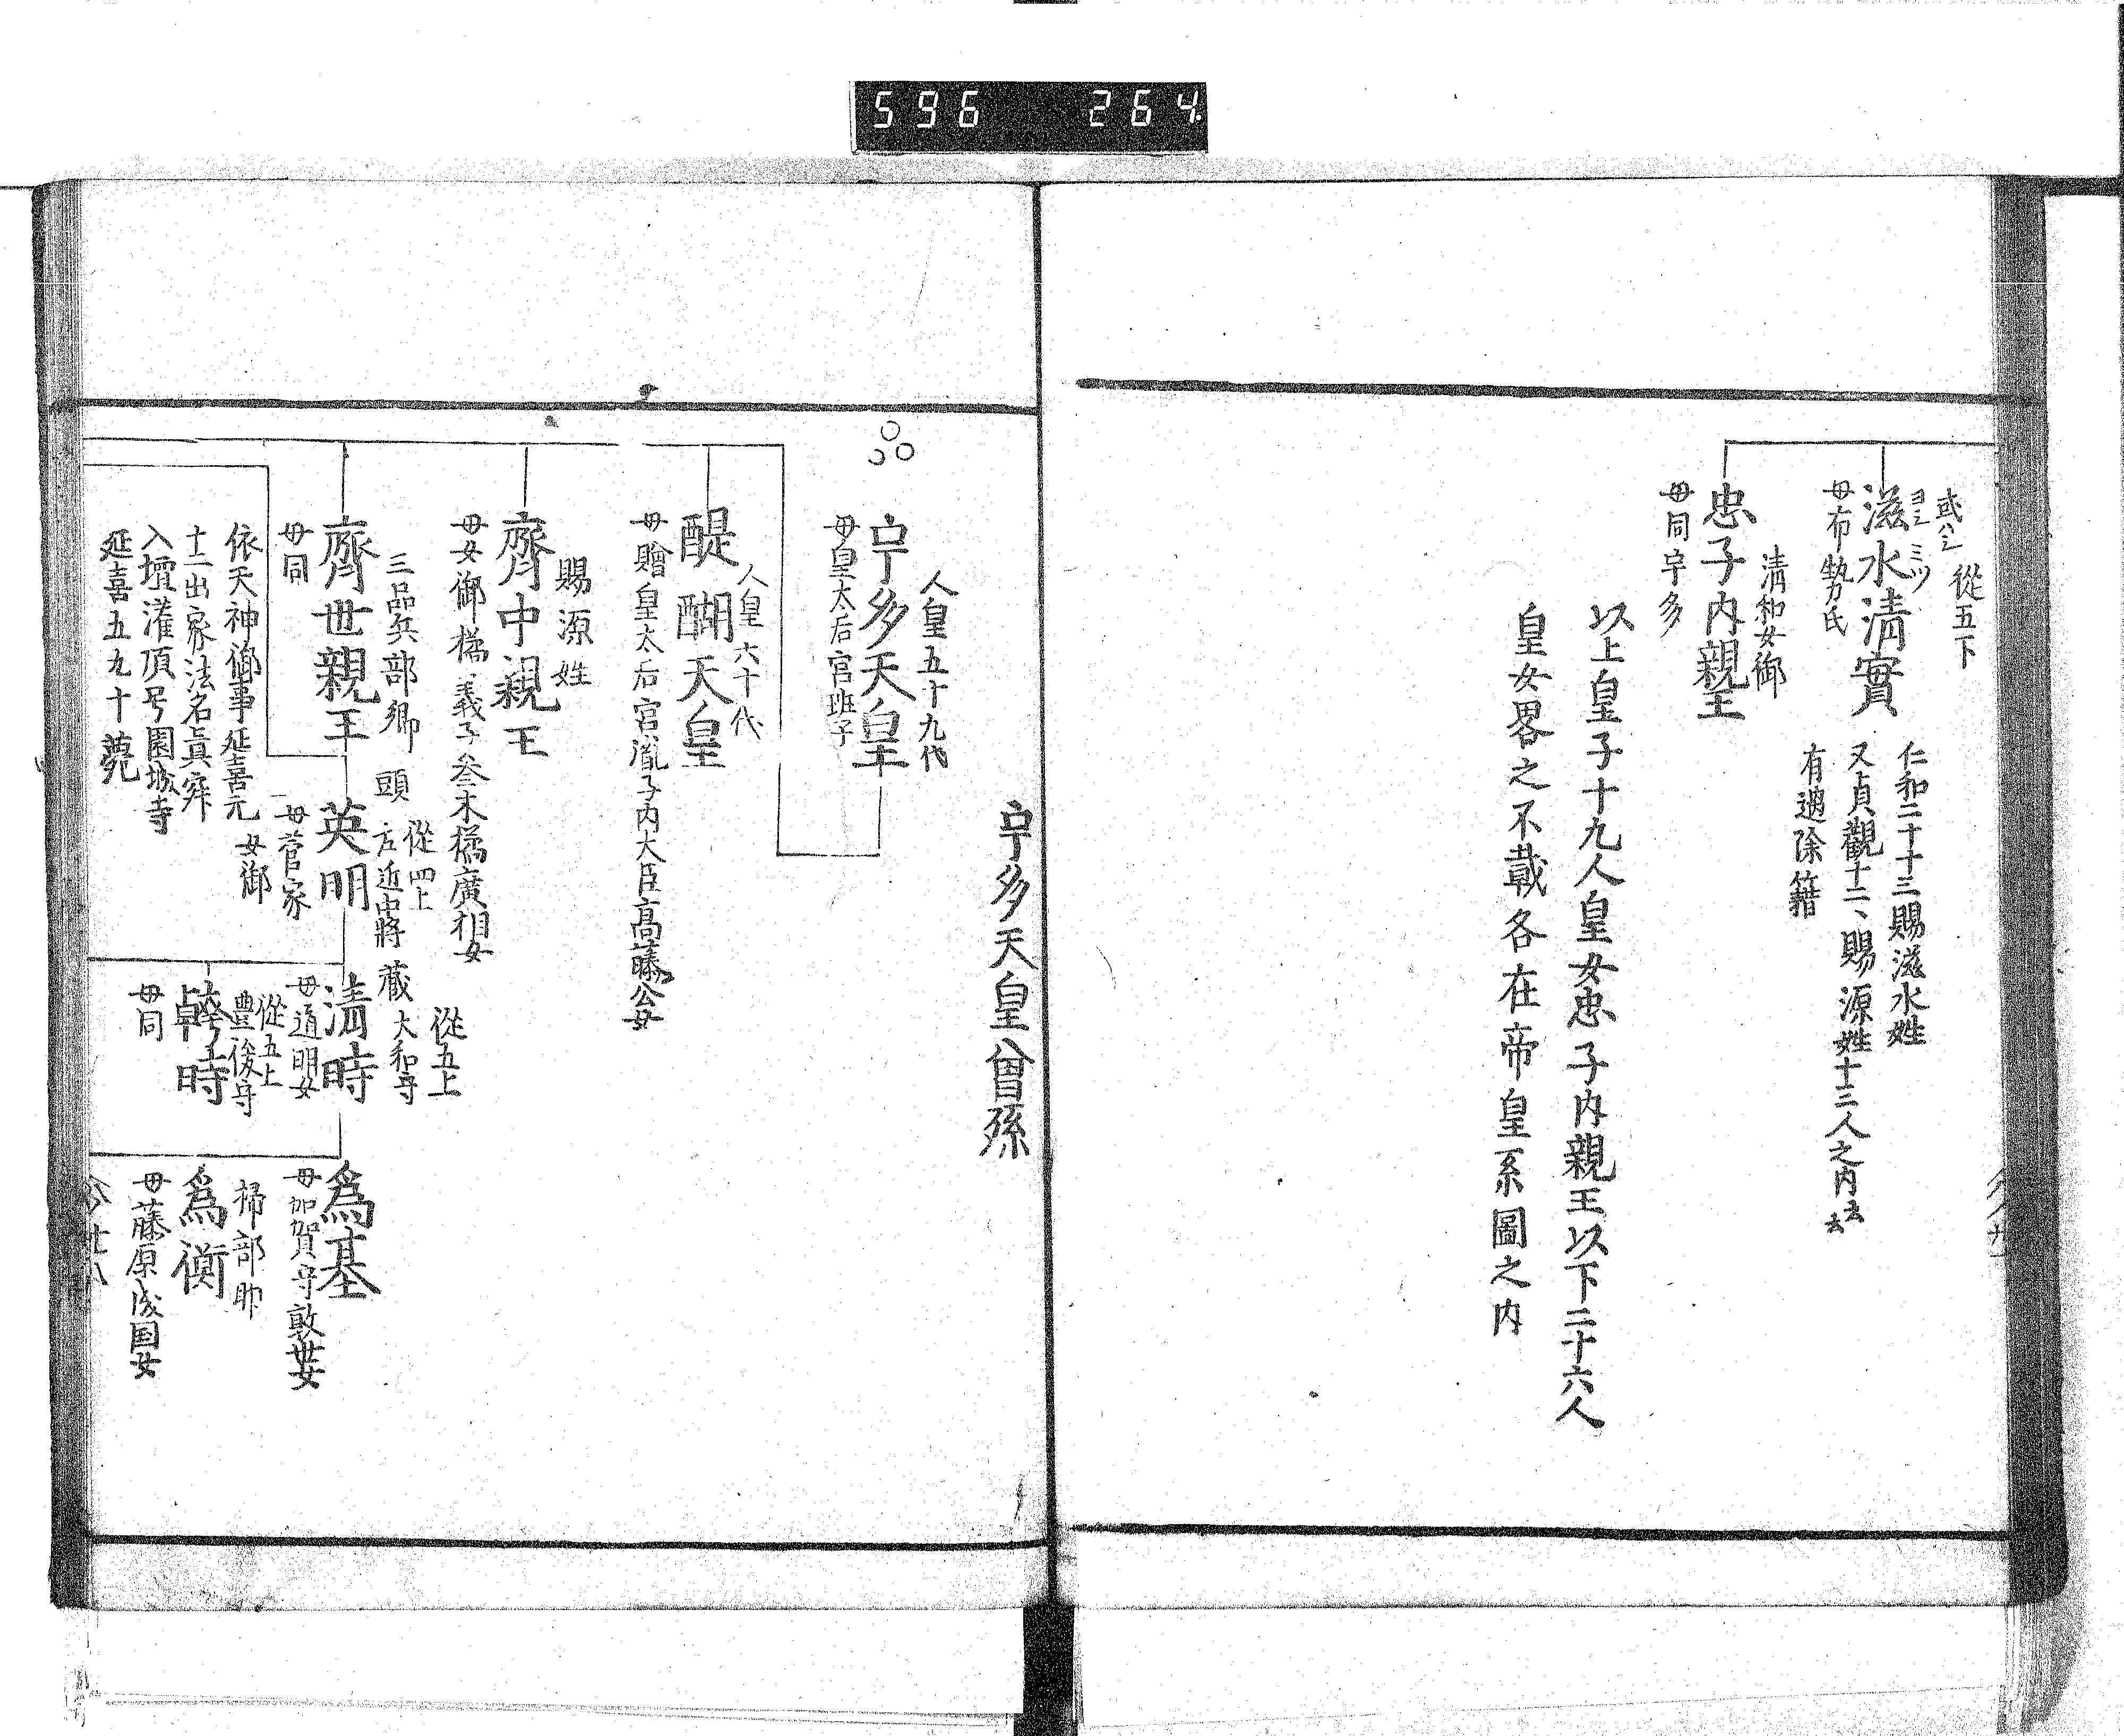 596 264
從五下
滋水清實
母布勢氏
仁和二十十三賜滋水姓
又貞觀十二、賜源姓十二人之内云云
有過除籍
清和女御
忠子内親王
母同宇多
以上皇子十九人皇女忠子内親王以下二十六人
皇女畧之不載各在帝皇系圖之内
宇多天皇曾孫
人皇五十九代
宇多天皇
母皇太后宮班子
人皇六十代
醍醐天皇
母贈皇太后宮胤子内大臣高藤公女
賜源姓
齊中親王
母女御橘義子参木橘廣相女
三品兵部卿
齊世親王
母同
依天神御事延喜元
十二出家法名真寂
入壇灌頂号園城寺
延喜五九十薨
從四上
頭左近中將
英明
母菅家女御
從五上
藏大和守
清時
母道明女
從五上
豊後守
時
母同
為基
母加賀守敦世女
掃部助
為衡
母藤原成国女